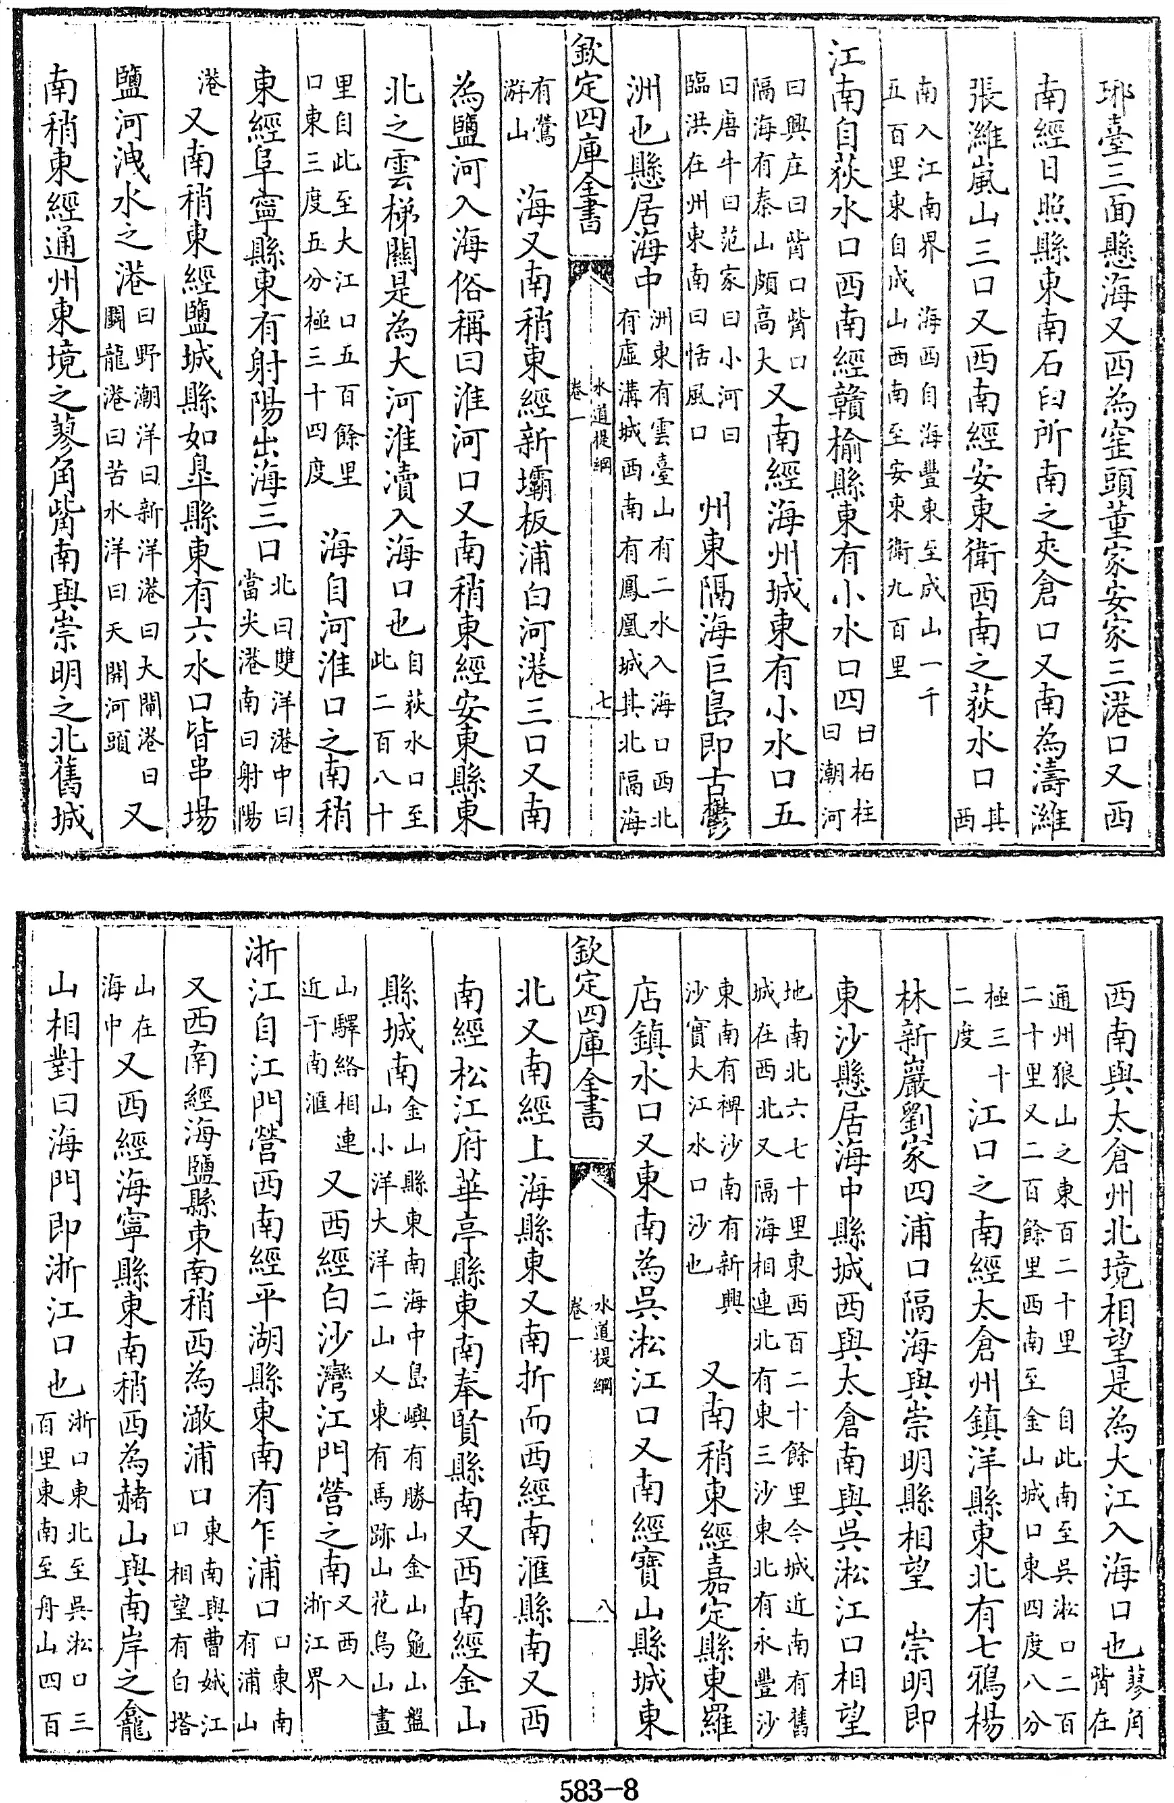 琊臺三面懸海又西為宦頭董家安家三港口又西
南經日照縣東南石臼所南之夾倉口又南為濤雒
張雒嵐山三口又西南經安東衛西南之荻水口其西
南入江南界　海西自海豐東至成山一千
五百里東自成山西南至安東衛九百里
江南自荻水口西南經贛榆縣東有小水口四曰柘柱曰潮河
曰興庄曰背口背口
隔海有秦山頗高大又南經海州城東有小水口五
曰唐牛曰范家曰小河曰
臨洪在州東南曰恬風口　州東隔海巨島即古鬱
洲也懸居海中洲東有雲臺山有二水入海口西北
有虛溝城西南有鳳凰城其北隔海
欽定四庫全書　水道提綱卷一　七
有鶯
游山　海又南稍東經新壩板浦白河港三口又南
為鹽河入海俗稱曰淮河口又南稍東經安東縣東
北之雲梯關是為大河淮瀆入海口也自荻水口至
此二百八十
里自此至大江口五百餘里
口東三度五分極三十四度　海自河淮口之南稍
東經阜寧縣東有射陽出海三口北曰雙洋港中曰
當尖港南曰射陽
港又南稍東經鹽城縣如臯縣東有六水口皆串場
鹽河洩水之港曰野潮洋曰新洋港曰大閘港曰
鬬龍港曰苦水洋曰天開河頭又
南稍東經通州東境之蓼角嘴南與崇明之北舊城
西南與太倉州北境相望是為大江入海口也蓼角
嘴在
通州狼山之東百二十里　自此南至吳淞口二百
二十里又二百餘里西南至金山城口東四度八分
極三十
二度　江口之南經太倉州鎮洋縣東北有七鴉楊
林新巖劉家四浦口隔海與崇明縣相望　崇明即
東沙懸居海中縣城西與太倉南與吳淞江口相望
地南北六七十里東西百二十餘里今城近南有舊
城在西北又隔海相連北有東三沙東北有永豐沙
東南有裨沙南有新興
沙實大江水口沙也　又南稍東經嘉定縣東羅
店鎮水口又東南為吳淞江口又南經寶山縣城東
欽定四庫全書　水道提綱卷一　八
北又南經上海縣東又南折而西經南滙縣南又西
南經松江府華亭縣東南奉賢縣南又西南經金山
縣城南金山縣東南海中島嶼有勝山金山龜山盤
山小洋大洋二山又東有馬跡山花鳥山畫
山驛絡相連
近于南滙　又西經白沙灣江門營之南又西入
浙江界
浙江自江門營西南經平湖縣東南有乍浦口口東南
有浦山
又西南經海鹽縣東南稍西為澉浦口東南與曹娥江
口相望有白塔
山在
海中又西經海寧縣東南稍西為赭山與南岸之龕
山相對曰海門即浙江口也浙口東北至吳淞口三
百里東南至舟山四百
583-8